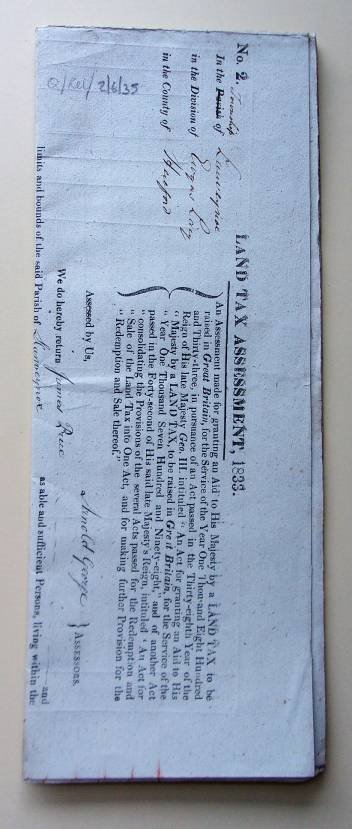 No. 2.
LAND TAX ASSESSMENT, 1833.
Township
In the Parish of Llanveynoe
in the Division of Ewyas Lacy
in the County of Hereford
An Assessment made for granting an Aid to His Majesty by a LAND TAX to be
raised in Great Britain, for the Service of the Year One Thousand Eight Hundred
and Thirty-three, in pursuance of an Act passed in the Thirty-eighth Year of the
Reign of His late Majesty Geo. III. intituled " An Act for granting an Aid to His
" Majesty by a LAND TAX, to be raised in Great Britain, for the Service of the
" Year One Thousand Seven Hundred and Ninety-eight," and of another Act
passed in the Forty-second of His said late Majesty's Reign, intituled " An Act for
" consolidating the Provisions of the several Acts passed for the Redemption and
" Sale of the Land Tax into One Act, and for making further Provision for the
" Redemption and Sale thereof."
Q/Rel/2/6/35
Assessed by Us,
Arnold George } ASSESSORS.
We do hereby return James and
limits and bounds of the said Parish of as able and sufficient Persons, living within the